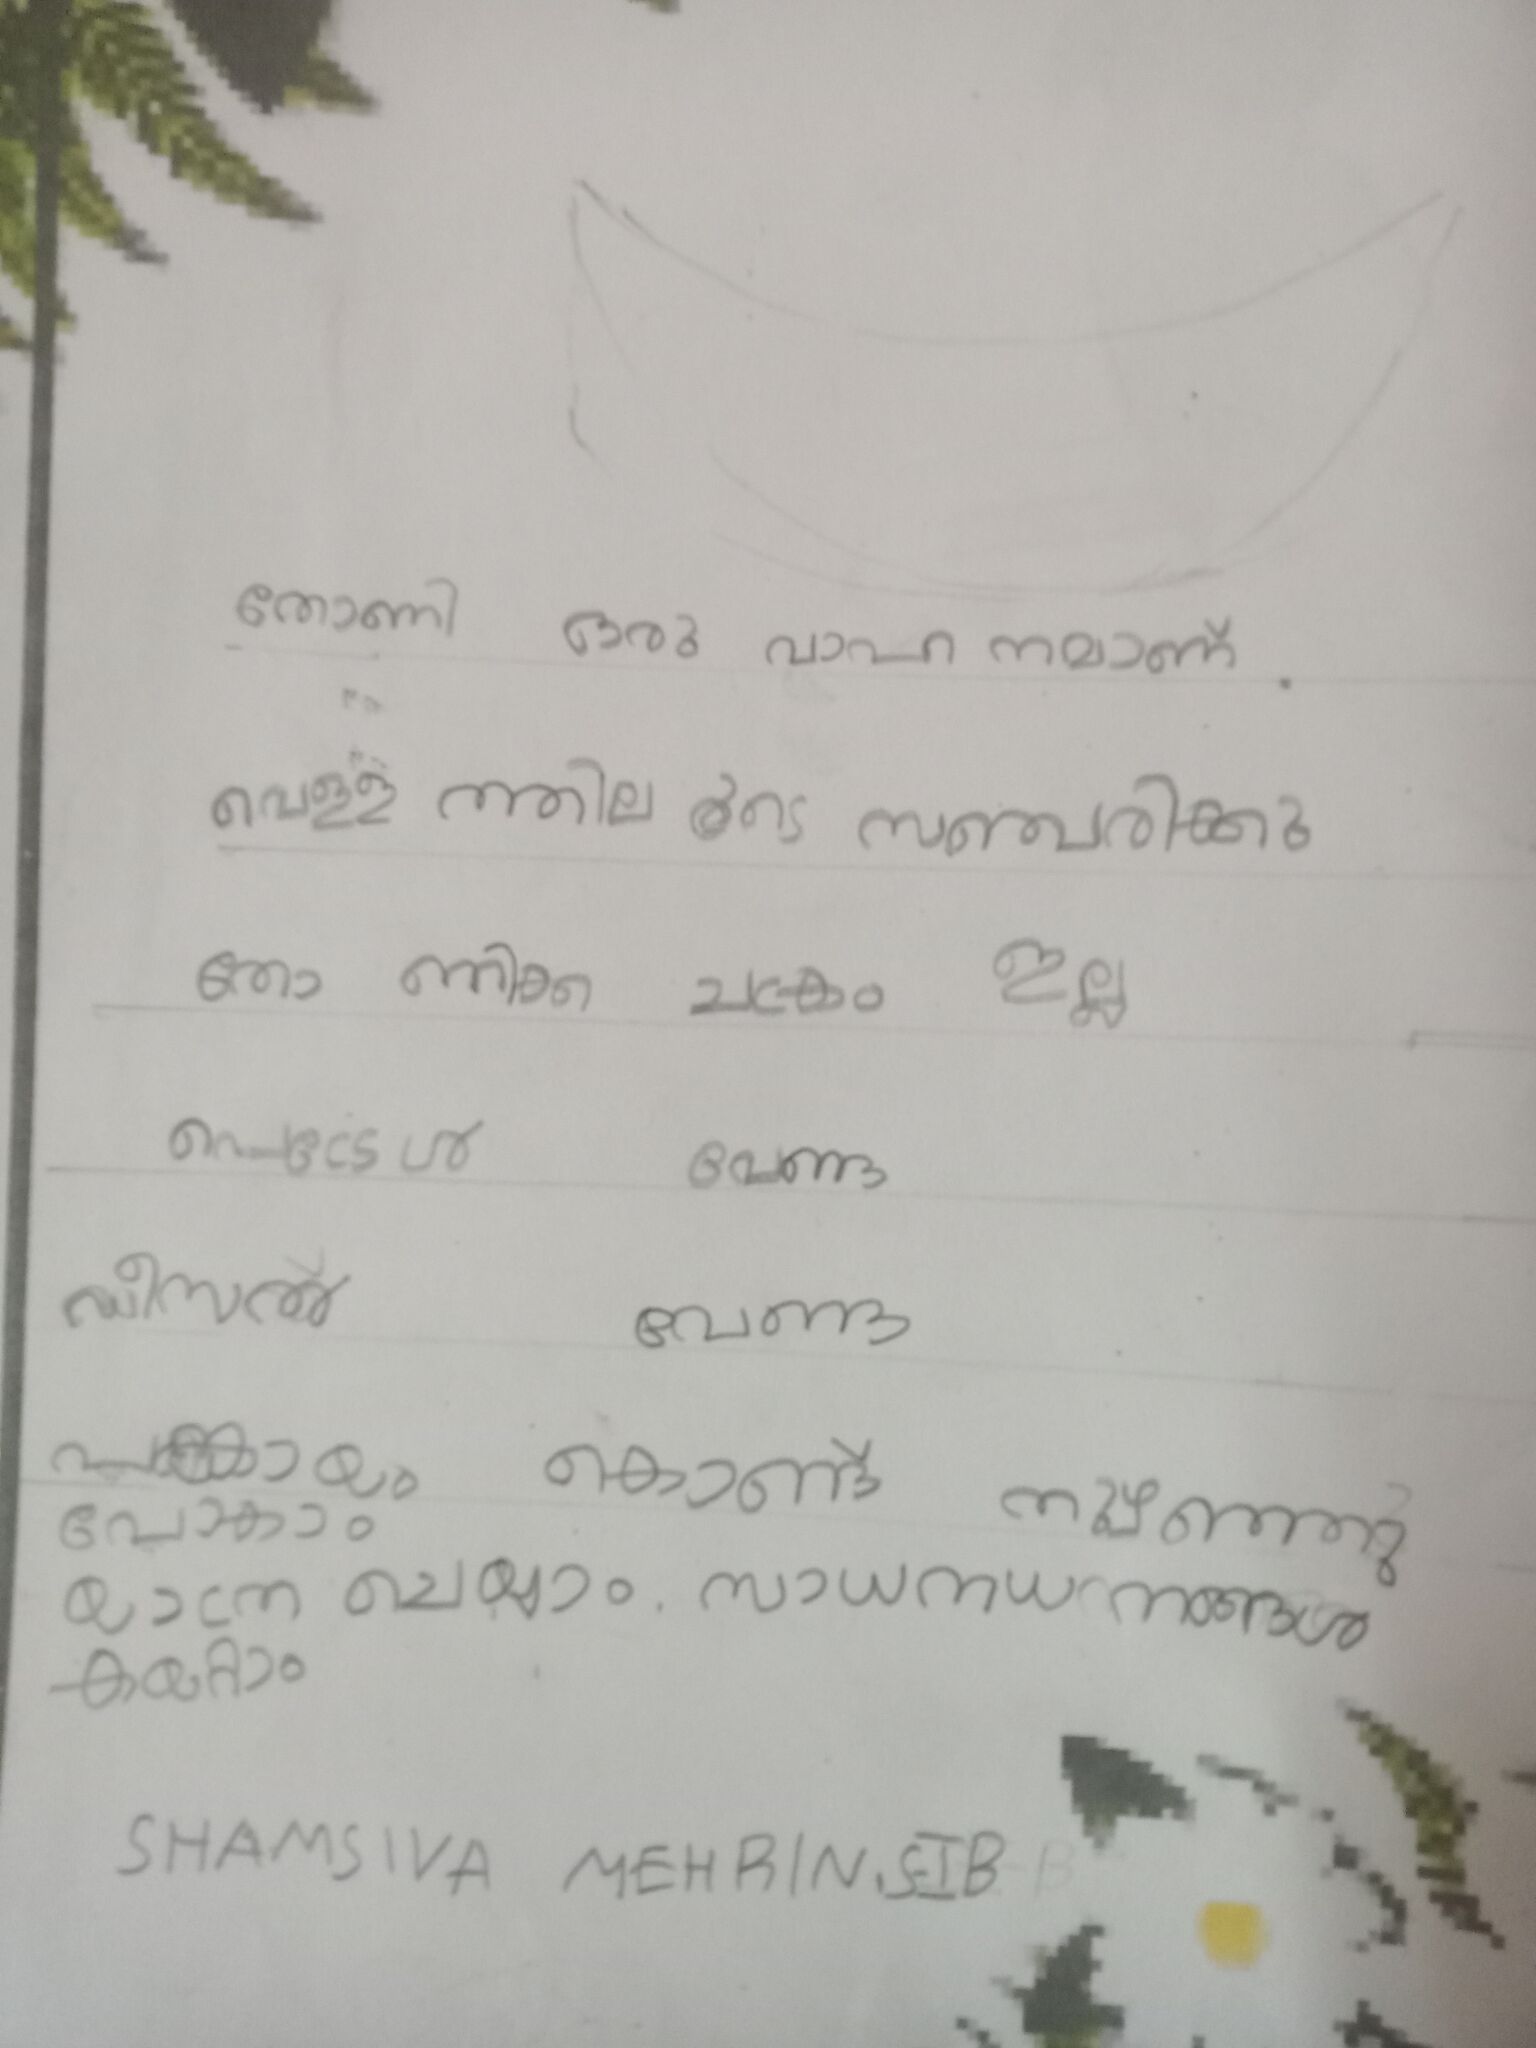 തോണി ഒരു വാഹ നമാണ്.
വെള്ള ത്തില ൂടെ സഞ്ചരിക്കു
തോ ണിക്ക ചക്രം ഇല്ല
പെട്രോൾ വേണ്ട
ഡീസൽ വേണ്ട
പങ്കായം കൊണ്ട്
പോകാം
യാത്ര ചെയ്യാം. സാധനധനങ്ങൾ
കയറ്റാം
SHAMSIVA MEHRIN.S I B